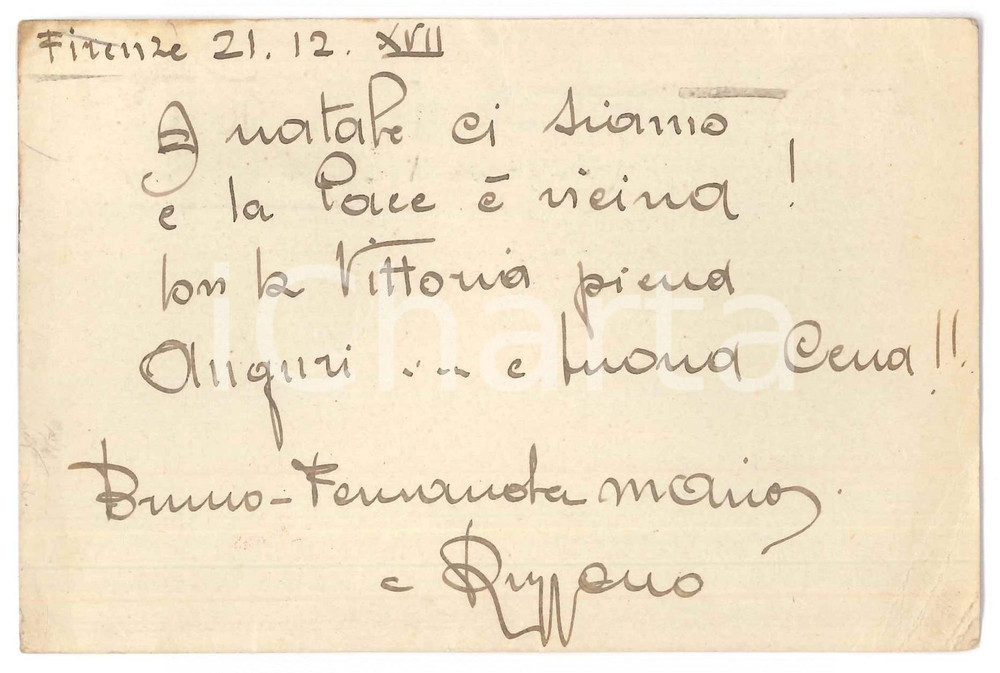 Firenze 21. 12. XVII
A natale ci siamo
e la Pace è vicina!
con la Vittoria piena
Auguri .... e buona Cena!!
Bruno - Fernanda Mario
e Ruggero
iCharta